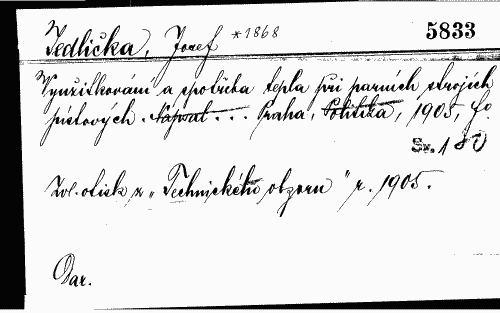 5833
Jedlička, Josef *1868
Využitkování a spotřeba tepla při parních strojích
pístových. Napsal... Praha, Politika, 1905, fo.
Sv. 1 80
Zvl. otisk z „Technického obzoru" r. 1905.
Dar.